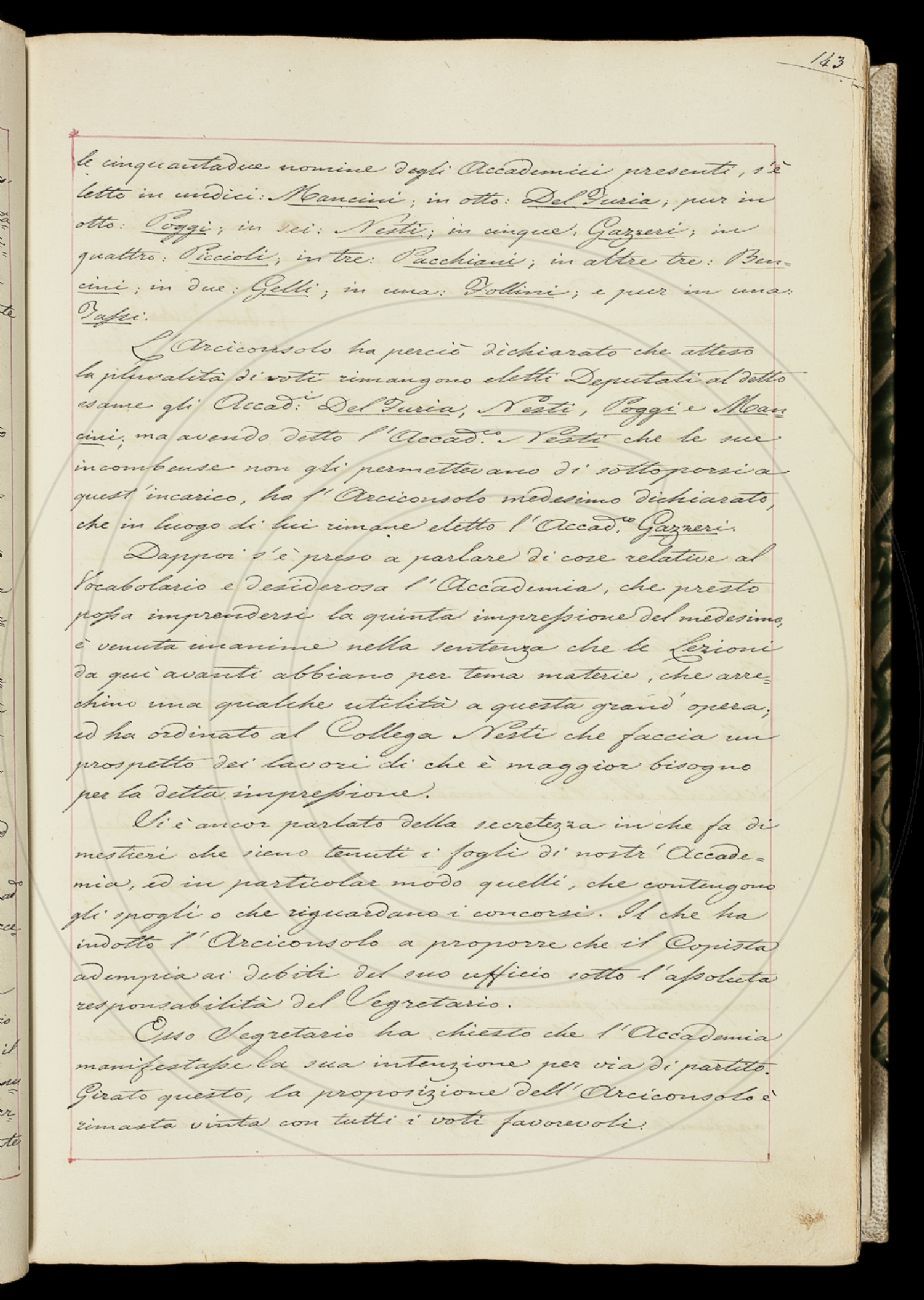 143
le cinquantadue nomine degli Accademici presenti, s'è
letto in undici: Mancini; in otto: Del Furia; pur in
otto: Poggi; in sei: Nesti; in cinque. Gazzeri; in
quattro: Piccioli; in tre: Pacchiani; in altre tre: Ben=
cini; in due: Gelli; in una: Follini; e pur in una:
Tassi.
L'Arciconsolo ha perciò dichiarato che atteso
la pluralità di voti rimangono eletti Deputati al detto
esame gli Accad.i Del Furia, Nesti, Poggi e Man=
cini; ma avendo detto l'Accad.co Nesti che le sue
incombense non gli permettevano di sottoporsi a
quest'incarico, ha l'Arciconsolo medesimo dichiarato,
che in luogo di lui rimane eletto l'Accad.co Gazzeri.
Dappoi s'è preso a parlare di cose relative al
Vocabolario e desiderosa l'Accademia, che presto
possa imprendersi la quinta impressione del medesimo,
è venuta unanime nella sentenza che le Lezioni
da qui avanti abbiano per tema materie, che arre=
chino una qualche utilità a questa grand'opera;
ed ha ordinato al Collega Nesti che faccia un
prospetto dei lavori di che è maggior bisogno
per la detta impressione.
Si è ancor parlato della secretezza in che fa di
mestieri che sieno tenuti i fogli di nostr'Accade=
mia, ed in particolar modo quelli, che contengono
gli spogli o che riguardano i concorsi. Il che ha
indotto l'Arciconsolo a proporre che il Copista
adempia ai debiti del suo ufficio sotto l'assoluta
responsabilità del Segretario.
Esso Segretario ha chiesto che l'Accademia
manifestasse la sua intenzione per via di partito.
Girato questo, la proposizione dell'Arciconsolo è
rimasta vinta con tutti i voti favorevoli.